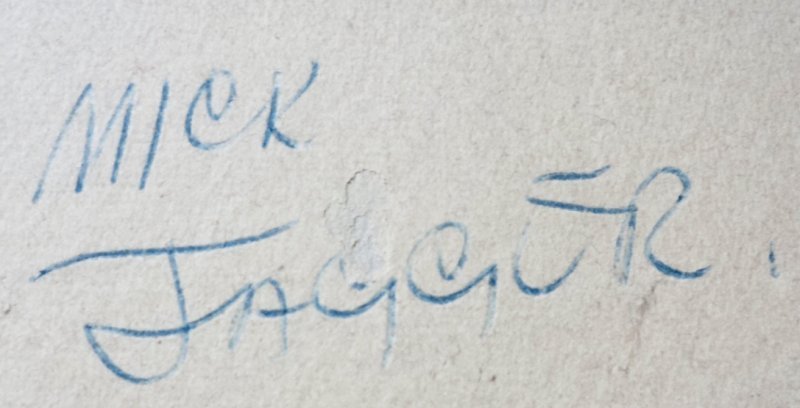 MICK
JAGGER.